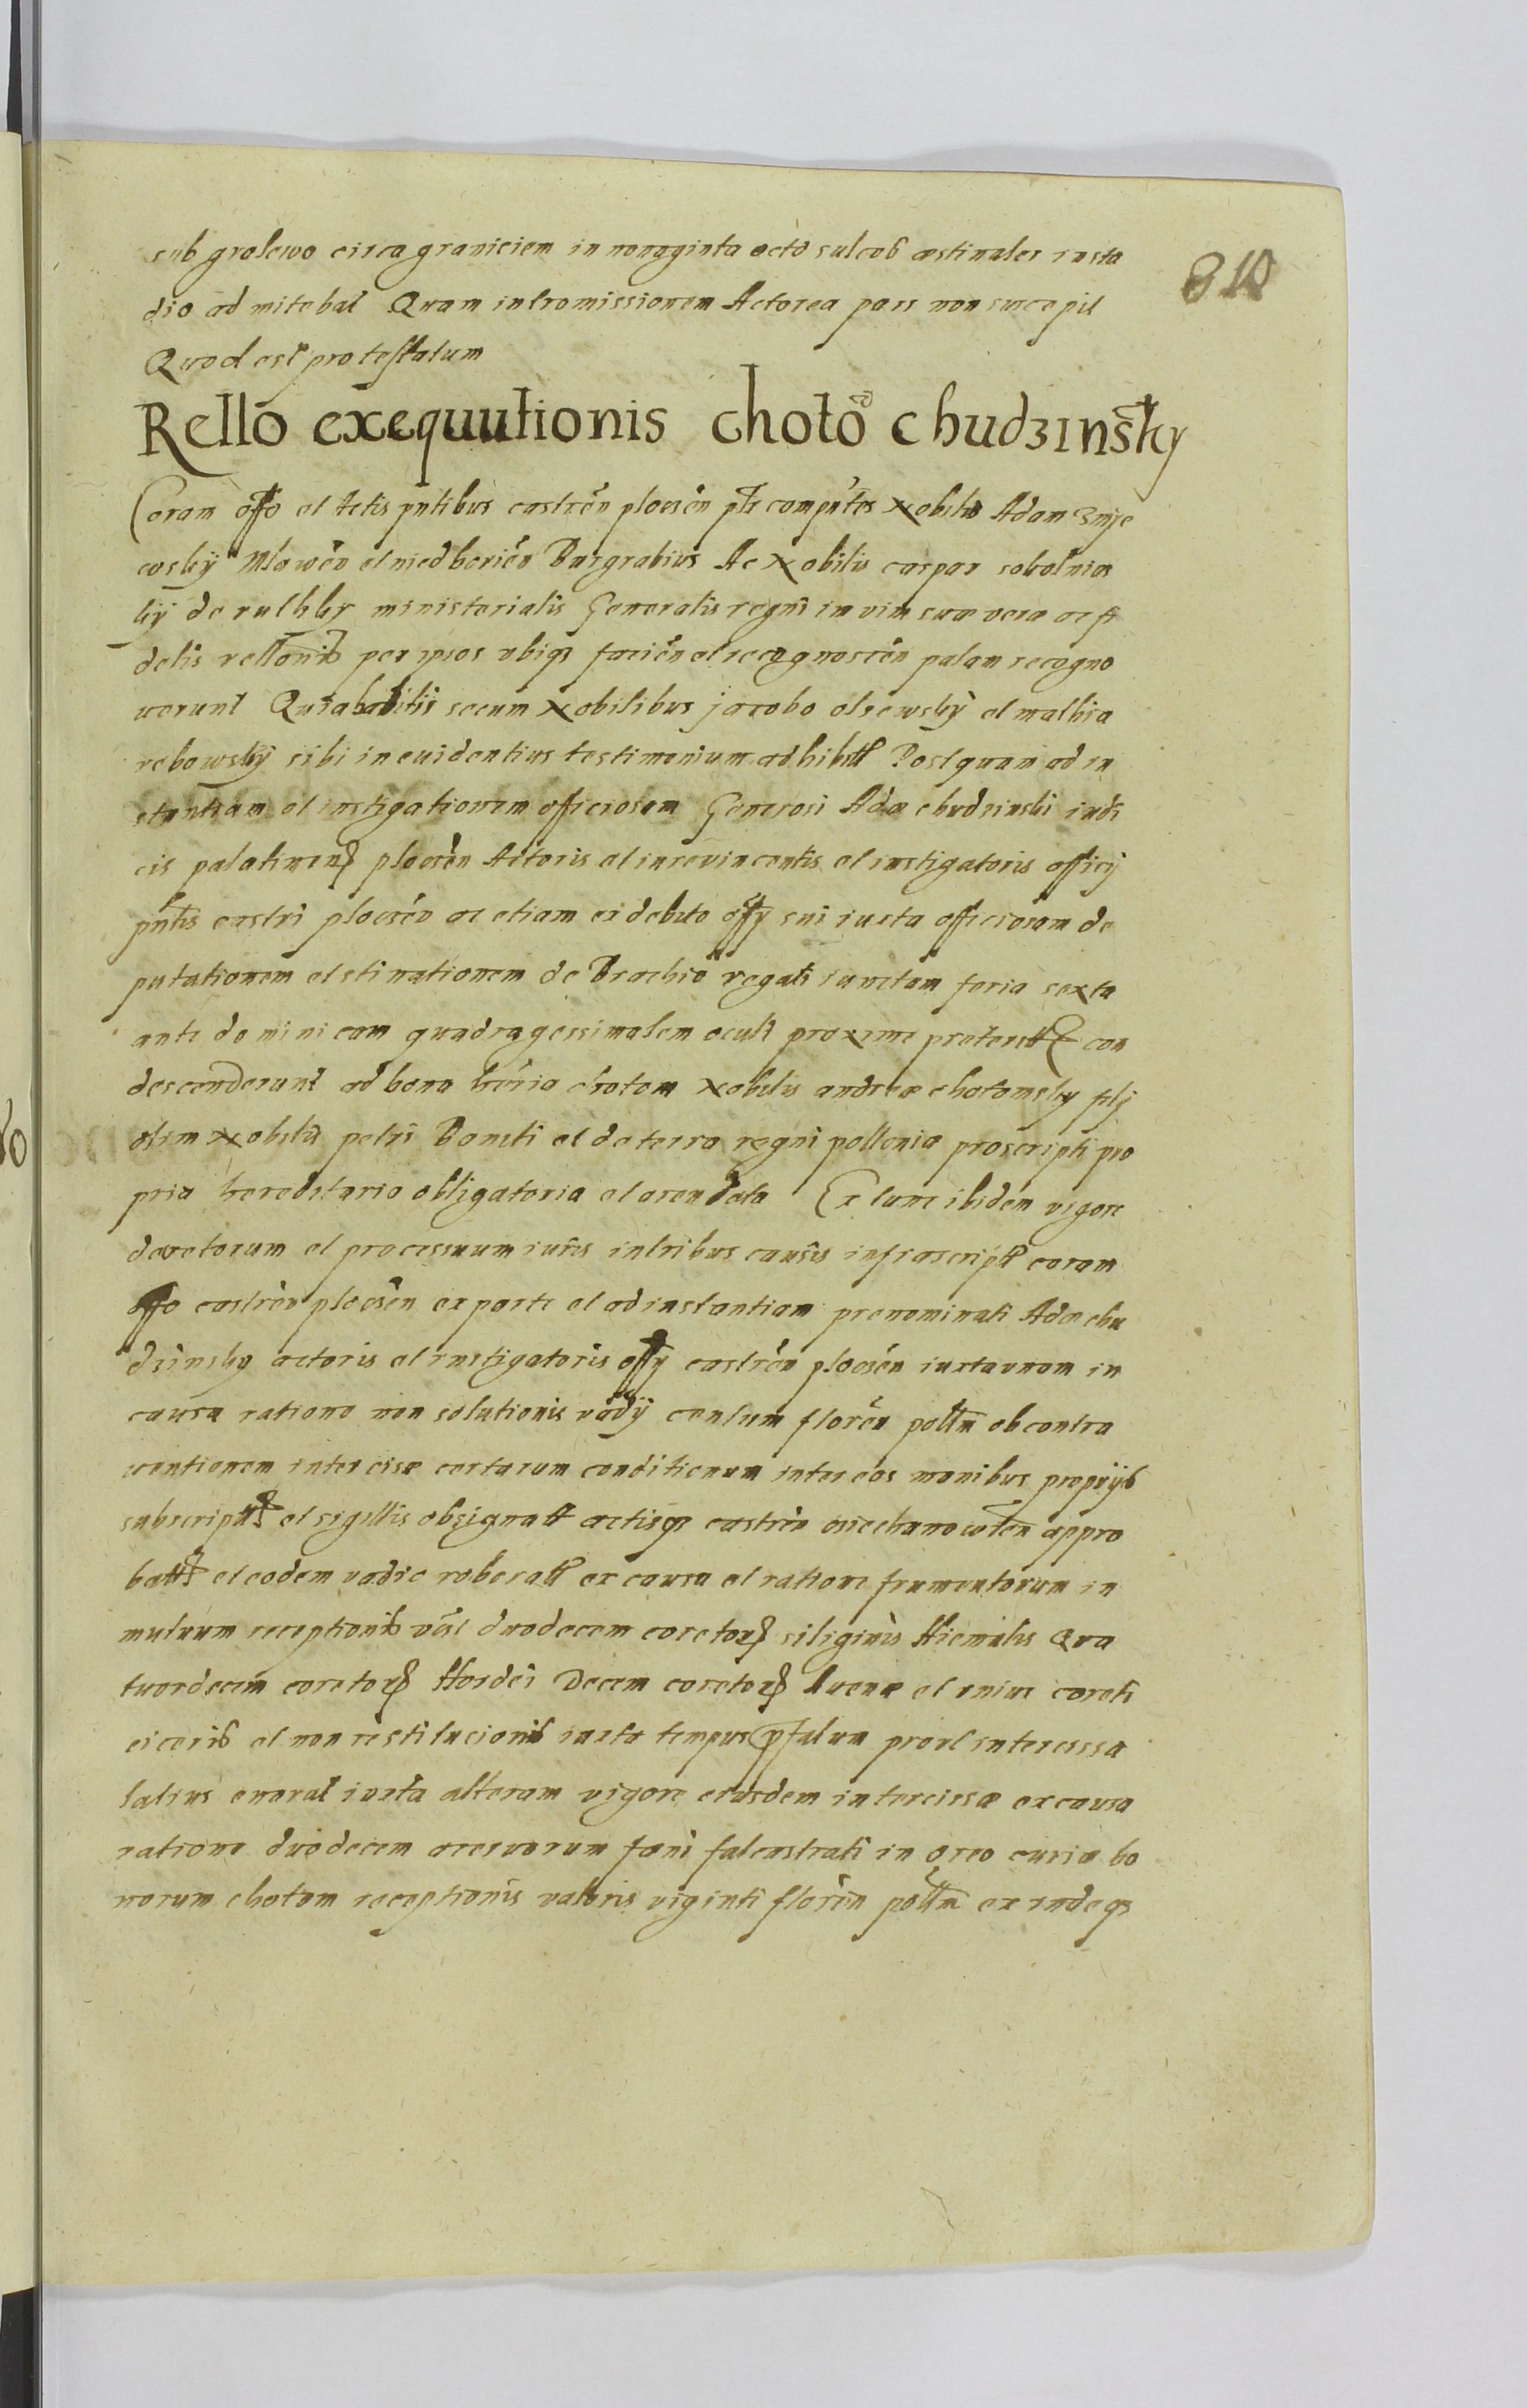 810
sub grolewo circa graniciem in nonaginta octo sulcos æstinales iusta
dio admitebat Quam intromissionem Actorea pars non suscepit
Quod est protestatum
Rello exequutionis choto chudzinsky
Coram offo et Actis pntibus castren plocen compntes Nobilis Adam
Mlawen et niedborien Burgrabius Ac Nobilis caspar sobolnics
ky de rulkky ministerialis Generalis regni in vim suæ veræ ac fi
delis rellonis per ipsos ubiq facien et recognoscen palam recogno
verunt Quia habitis secum Nobilibus jacobo olsewsky et mathia
rebowsky sibi in euidentius testimonium adhibit Postquam ad in
stantiam et instigationem officiosam Generosi Adæ chudzinski iudi
cis palatinen plocen Actoris et inrevincentis et instigatoris officij
pntis castri plocen ac etiam ex debito offy sui iuxta officiosam de
putationem et stinationem de Brachio regali iunctam feria sexta
ante dominicam quadragessimalem oculi proxime preterit con
descenderunt ad bona chotom Nobilis andreæ chotomsky filj
olim Nobilis petri Baniti et de terra regni polloniæ proscripti pro
pria hereditario obligatoria et arendata Ex tunc ibidem vigore
decretorum et processuum iuris in tribus causis infrascript coram
offo castren plocen ex parte et ad instantiam prenominati Adæ chu
dzinsky actoris et instigatoris offy castren plocen iuxta unam in
causa ratione non solutionis vadij centum floren pollm ob contra
ventionem intercisæ certarum conditionum inter eos manibus proprijs
subscript et sigillis obsignatt actisq castren appro
batt et eodem vadio roboratt ex causa et ratione frumentorum in
mutuum receptionis duodecem coretor siliginis Hiemalis Qua
tuordecem coretor Hordei Decem coretor Avenæ et unius coreti
ciceris et non restitucionis iuxta tempus pfatum prout intercissa
latius enerat iuxta alteram vigore eiusdem intercissæ ex causa
ratione duodecem acervorum fœni falcastrati in oreo curiæ bo
norum chotom receptionis valoris viginti floren pollm exindeq